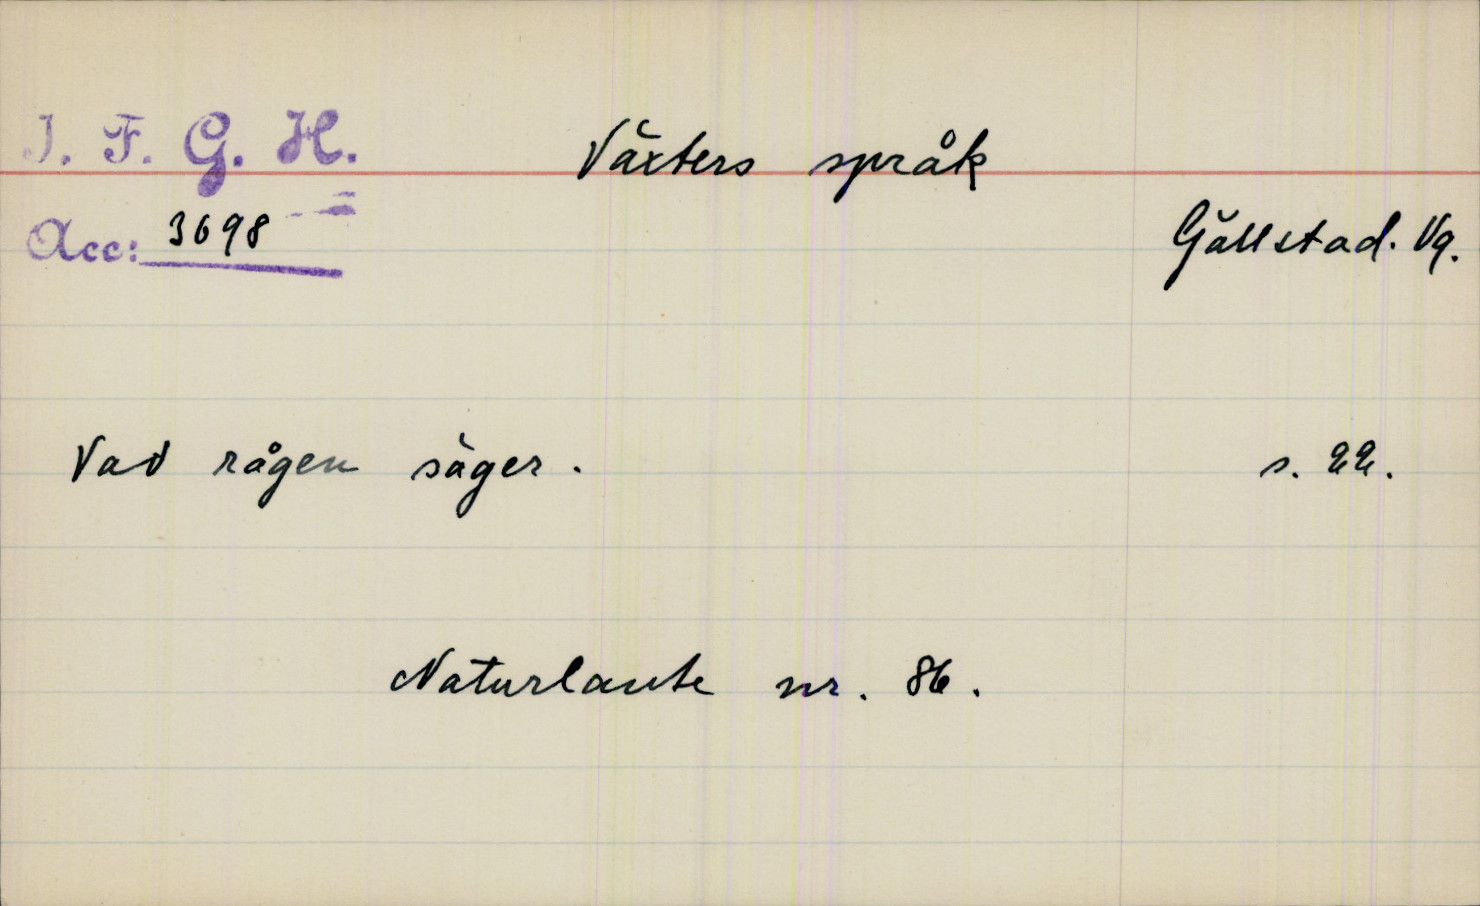 I. F. G. H.
Växters språk
Acc: 3698
Gällstad. Vg.
Vad rågen säger. s. 22.
Naturlaute nr. 86.